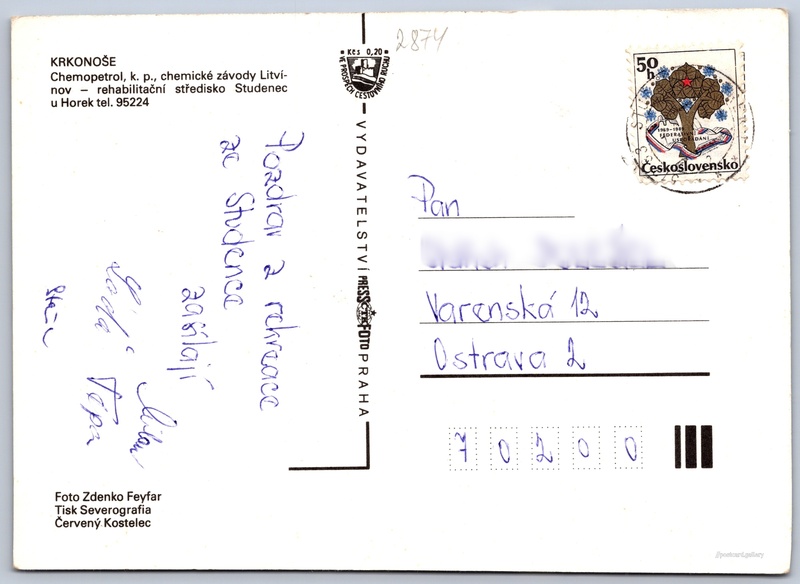 KRKONOŠE
Chemopetrol, k. p., chemické závody Litví-
nov – rehabilitační středisko Studenec
u Horek tel. 95224
Kčs 0,20
VE PROSPĚCH CESTOVNÍHO RUCHU
2874
50
h
1969-1989
FEDERATIVNÍ
USPOŘÁDÁNÍ
Československo
Pozdrav z rekreace
ze Studence
zasílají
Milan
Láďa Pepa
VYDAVATELSTVÍ PRESSFOTO PRAHA
ČTK
Pan
Varenská 12
Ostrava 2
70200
Foto Zdenko Feyfar
Tisk Severografia
Červený Kostelec
//postcard.gallery